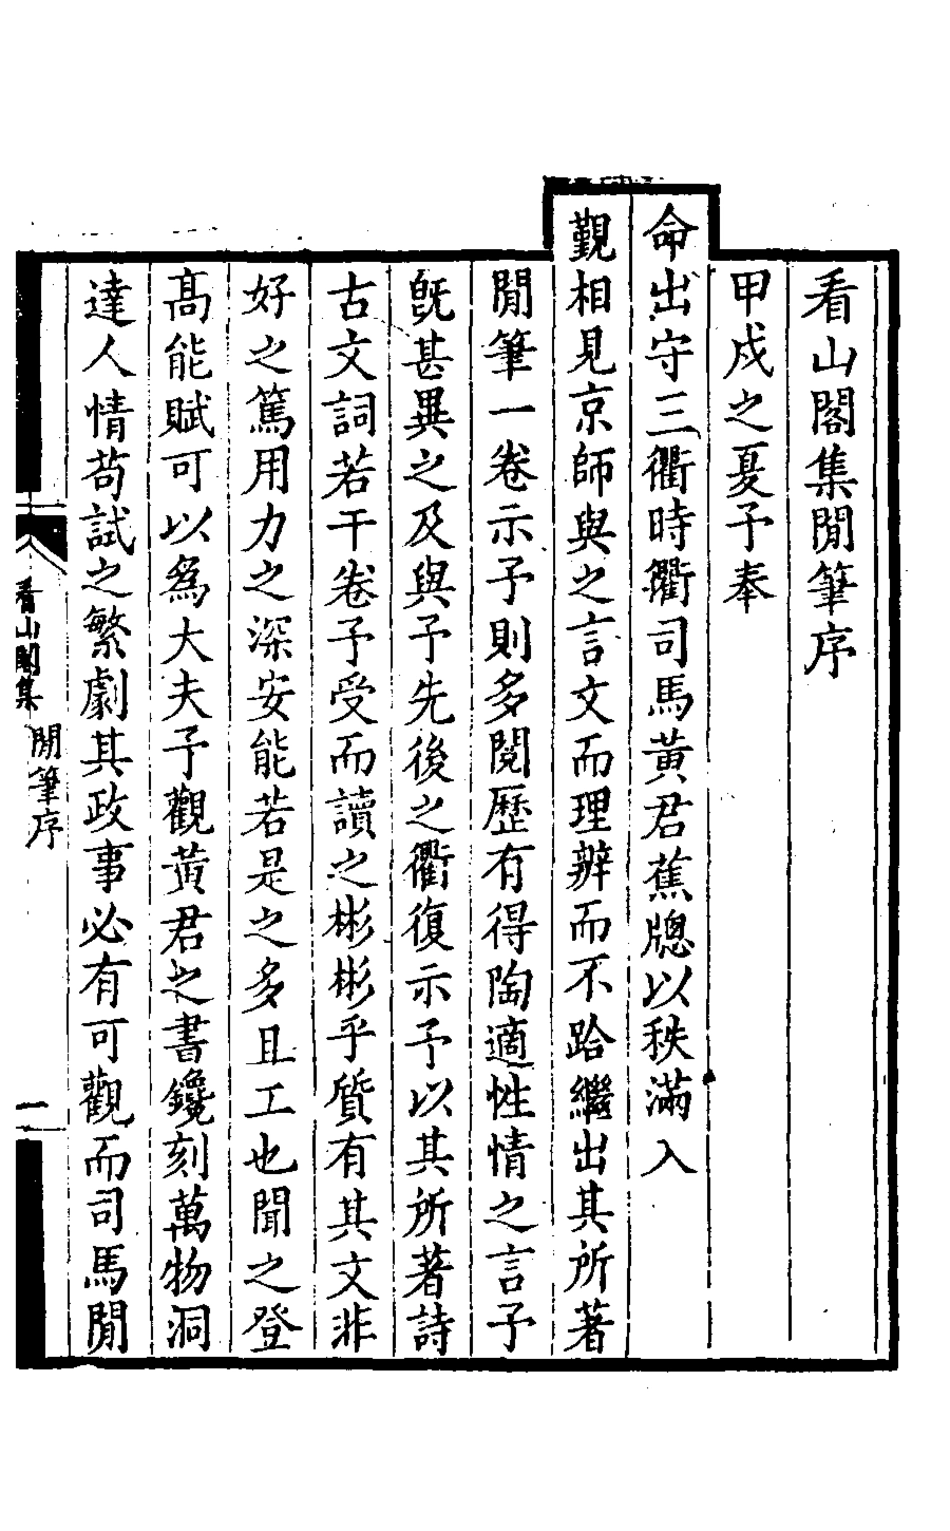 看山閣集閒筆序
甲戍之夏予奉
命出守三衢時衢司馬黃君蕉牕以秩滿入
覲相見京師與之言文而理辨而不跲繼出其所著
閒筆一卷示予則多閱歷有得陶適性情之言予
旣甚異之及與予先後之衢復示予以其所著詩
古文詞若干卷予受而讀之彬彬乎質有其文非
好之篤用力之深安能若是之多且工也聞之登
高能賦可以爲大夫予觀黃君之書鑱刻萬物洞
達人情苟試之繁劇其政事必有可觀而司馬閒
看山閣集
閒筆序
一